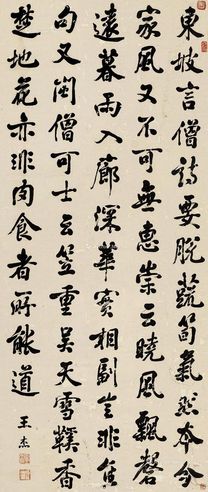 東坡言僧詩要脫蔬筍氣然本分
家風又不可無惠崇云曉風飄磬
遠暮雨入廊深華實相副豈非佳
句又閩僧可士云笠重吳天雪鞵香
楚地花亦非肉食者所能道
王杰